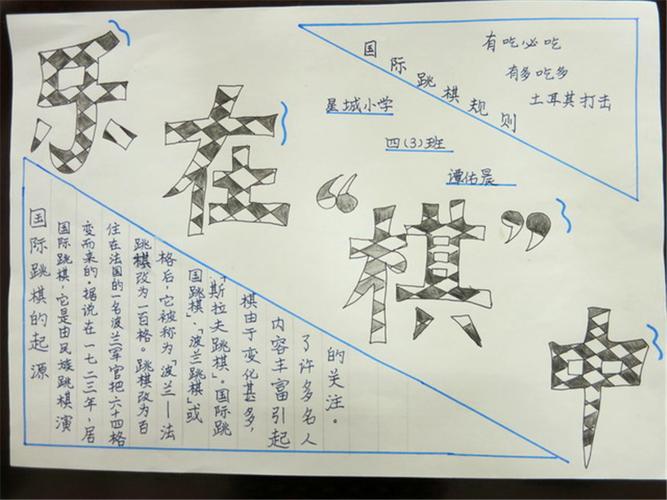 乐在“棋”中
国际跳棋规则
有吃必吃
有多吃多
土耳其打击
星城小学
四(3)班
谭佑晨
国际跳棋的起源
国际跳棋,它是由民族跳棋演
变而来的。据说在一七二三年,居
住在法国的一名波兰军官把六十四格
跳棋改为一百格。跳棋改为百
格后,它被称为「波兰—法
国跳棋、「波兰跳棋」或
「斯拉夫跳棋」。国际跳
棋由于变化甚多,
内容丰富引起
了许多名人
的关注。